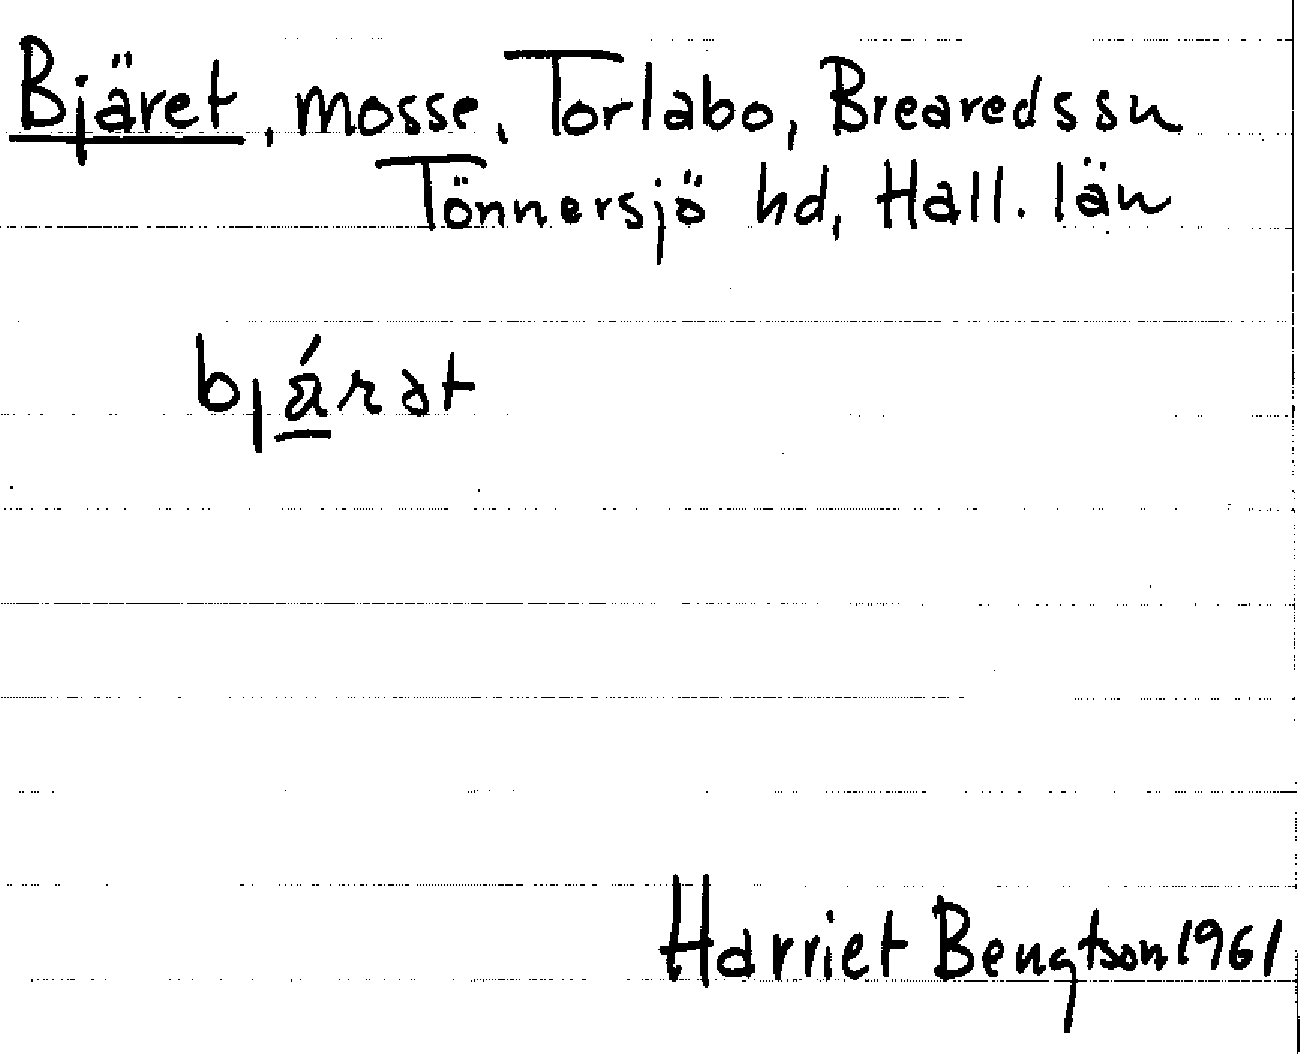 Bjäret, mosse, Torlabo, Brearedssn
Tönnersjö hd, Hall. län
bjá̱rət
Harriet Bengtson 1961